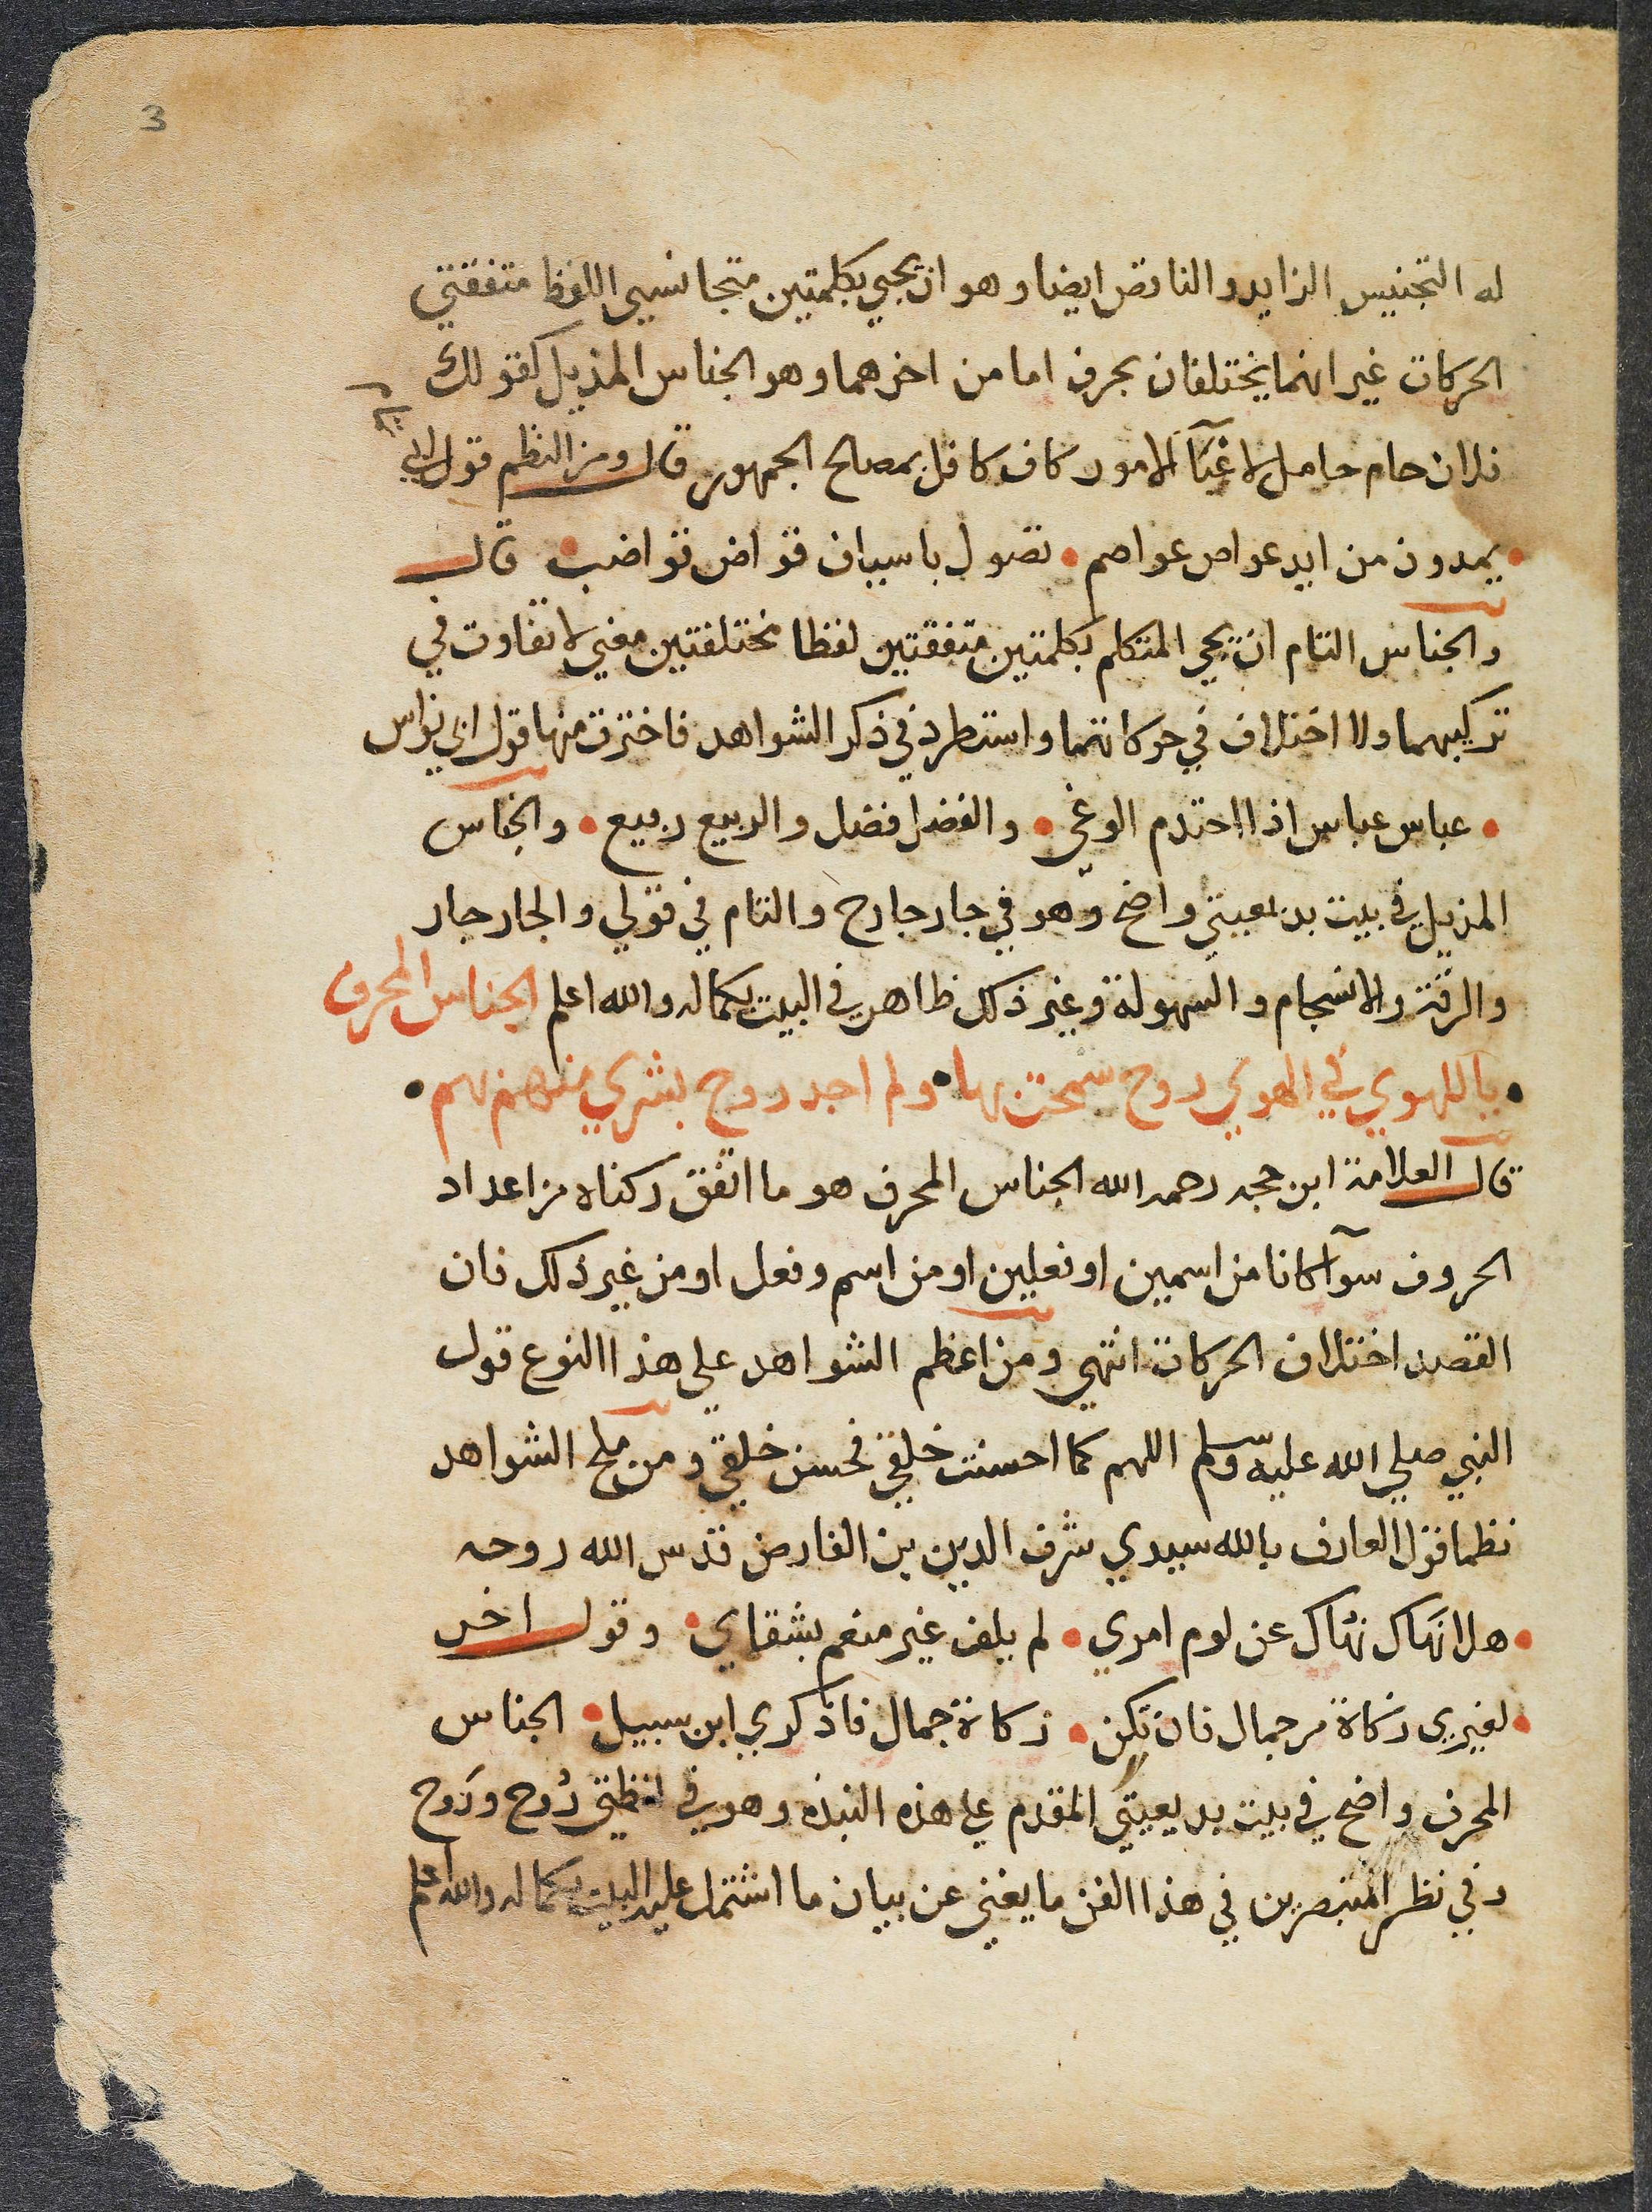 3
له التجنيس الزايد والناقص ايضا وهو ان يجي بكلمتين متجانسي اللفظ متفقتي
الحركات غير انهما يختلفان بحرف اما من اخرهما وهو الجناس المذيل كقولك
فلان حام حامل لاعبآ الامور كاف كافل بمصالح الجمهور قال ومن النظم قول ابي
يمدون من ايد عواص عواصم • تصول باسياف قواض قواضب • قال
والجناس التام ان يجي المتكلم بكلمتين متفقتين لفظا مختلفتين معني لا تفاوت في
تركيبهما ولا اختلاف في حركاتهما واستطرد في ذكر الشواهد فاخترت منها قول ابي نواس
• عباس عباس اذا احتدم الوغي • والفضل فضل والربيع ربيع • والجناس
المذيل في بيت بديعيتي واضح وهو في جار جارح والتام في قولي والجار جار
والرقة والانسجام والسهولة وغير ذلك ظاهر في البيت بكماله والله اعلم الجناس المحرف
• باللهوي في الهوي روح سمحت بها • ولم اجد روح بشري منهم بهم •
قال العلامة ابن حجه رحمه الله الجناس المحرف هو ما اتفق ركناه من اعداد
الحروف سوآ كانا من اسمين او فعلين او من اسم وفعل او من غير ذلك فان
القصد اختلاف الحركات انتهي ومن اعظم الشواهد علي هذا النوع قول
النبي صلي الله عليه وسلم اللهم كما احسنت خلقي فحسن خلقي ومن ملح الشواهد
نظما قول العارف بالله سيدي شرف الدين بن الفارض قدس الله روحه
• هلا نهاك نهاك عن لوم امري • لم يلف غير منعم بشقاي • وقول اخر
• لغيري زكاة من جمال فان تكن • زكاة جمال فاذكري ابن سبيل • الجناس
المحرف واضح في بيت بديعيتي المقدم علي هذه النبذه وهو في لفظتي رُوح ورَوح
وفي نظر المتبصرين في هذا الفن ما يغني عن بيان ما اشتمل عليه البيت بكماله والله اعلم